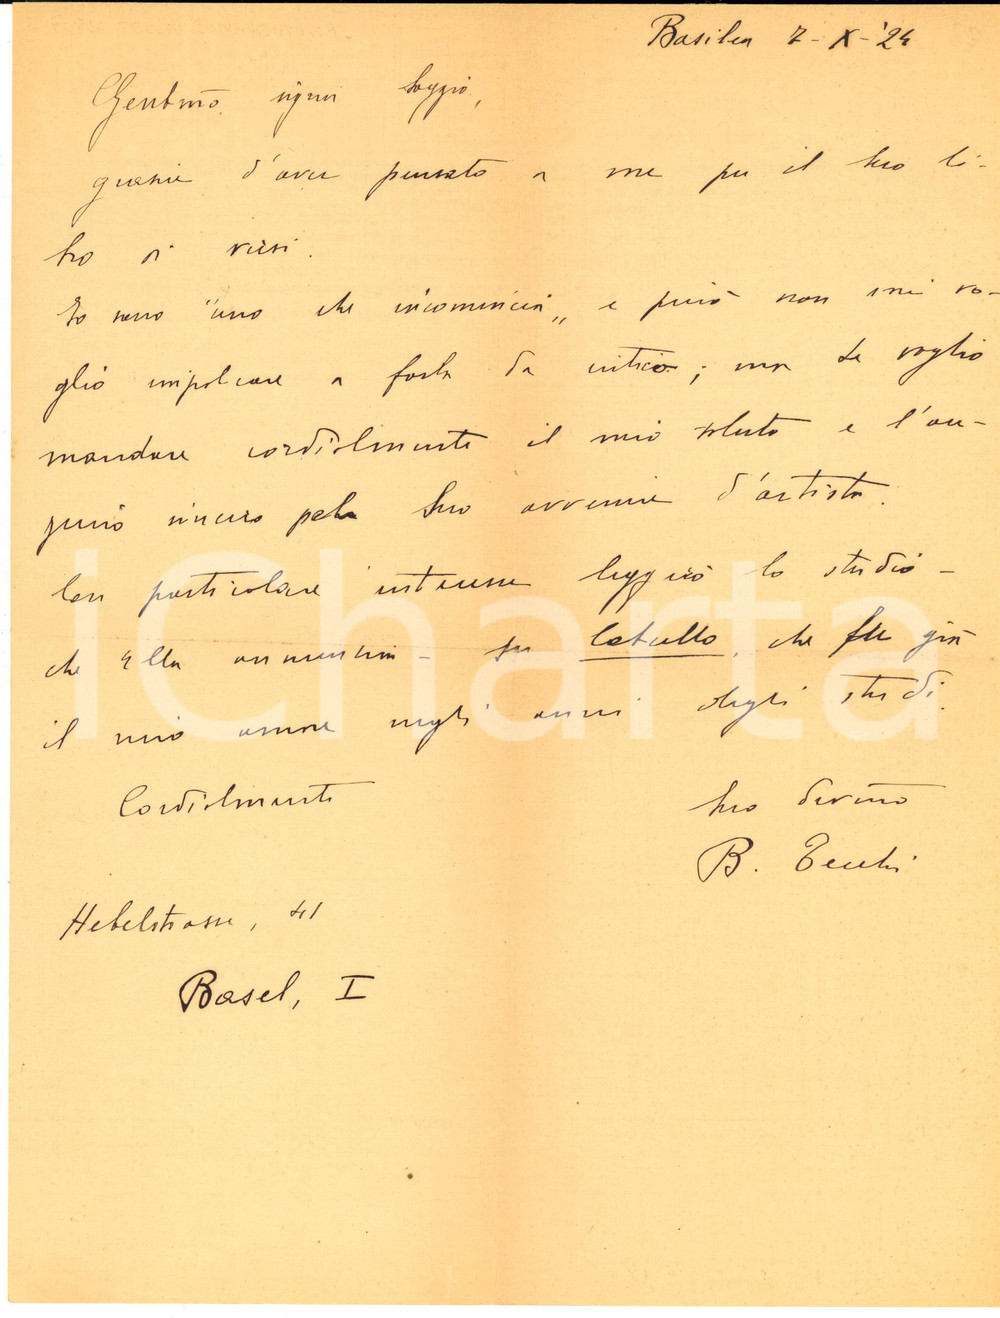 Basilea 7-X-'24
Gentmo signor Soggio,
grazie d'aver pensato a me per il Suo li-
bro di versi.
Io sono "uno che incomincia„ e perciò non mi vo-
glio impelcare a farla da critico; ma Le voglio
mandare cordialmente il mio saluto e l'au-
gurio sincero pel Suo avvenire d'artista.
Con particolare interesse leggerò lo studio -
che Ella annunzia - su Catullo, che fu già
il mio amore negli anni degli studi.
Cordialmente
Suo devmo
B. Tecchi
Hebelstrasse, 41
Basel, I
iCharta